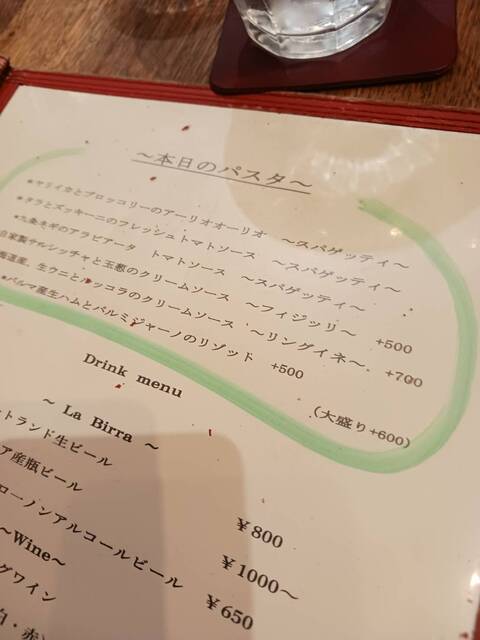 ～本日のパスタ～
*ヤリイカとブロッコリーのアーリオオーリオ ～スパゲッティ～
*タラとズッキーニのフレッシュトマトソース ～スパゲッティ～
*九条ネギのアラビアータ トマトソース ～スパゲッティ～
自家製サルシッチャと玉葱のクリームソース ～フィジッリ～ +500
海道産、生ウニとルッコラのクリームソース ～リングイネ～ +700
*パルマ産生ハムとパルミジャーノのリゾット +500
(大盛り+600)
Drink menu
～ La Birra ～
トランド生ビール ￥800
ア産瓶ビール ￥1000～
ローノンアルコールビール ￥650
～Wine～
グワイン
白・赤